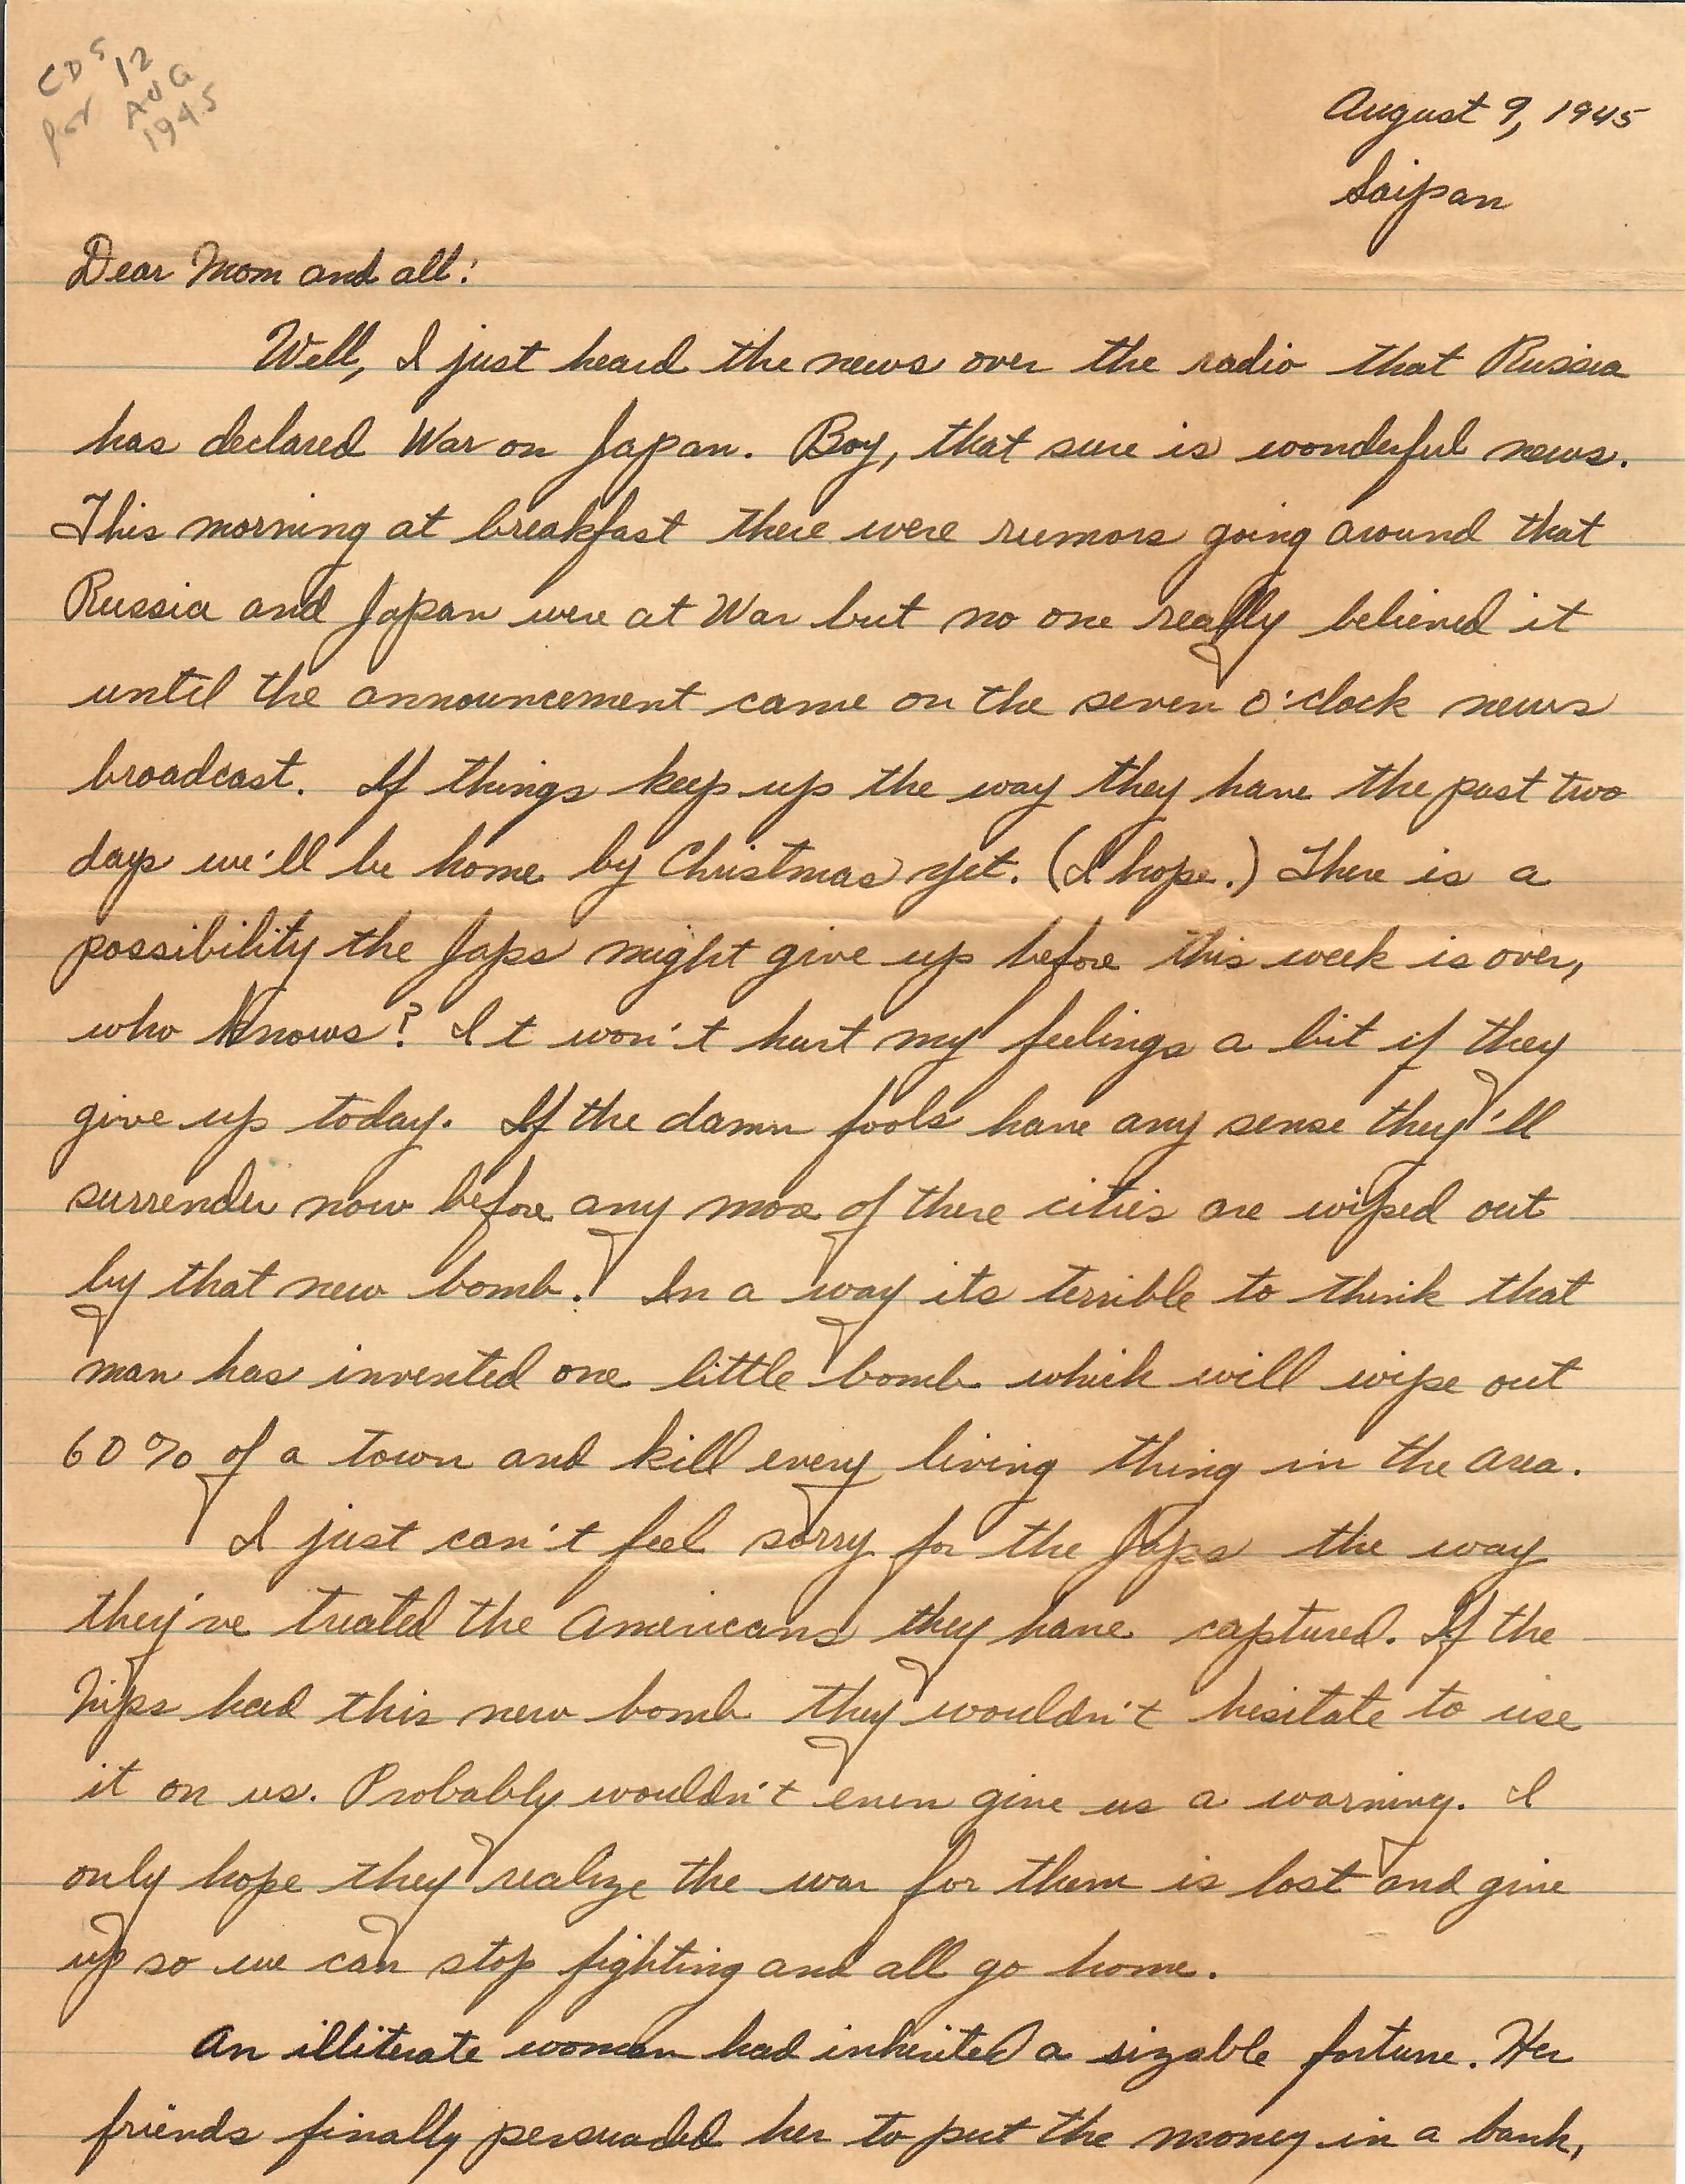 CDS
por 12
AUG
1945
August 9, 1945
Saipan
Dear Mom and all:
Well, I just heard the news over the radio that Russia
has declared War on Japan. Boy, that sure is wonderful news.
This morning at breakfast there were rumors going around that
Russia and Japan were at War but no one really believed it
until the announcement came on the seven o'clock news
broadcast. If things keep up the way they have the past two
days we'll be home by Christmas yet. (I hope.) There is a
possibility the Japs might give up before this week is over,
who knows? It won't hurt my feelings a bit if they
give up today. If the damn fools have any sense they'll
surrender now before any more of there cities are wiped out
by that new bomb. In a way its terrible to think that
man has invented one little bomb which will wipe out
60% of a town and kill every living thing in the area.
I just can't feel sorry for the Japs the way
they've treated the Americans they have captured. If the
Nips had this new bomb they wouldn't hesitate to use
it on us. Probably wouldn't even give us a warning. I
only hope they realize the war for them is lost and give
up so we can stop fighting and all go home.
An illiterate woman had inherited a sizable fortune. Her
friends finally persuaded her to put the money in a bank,